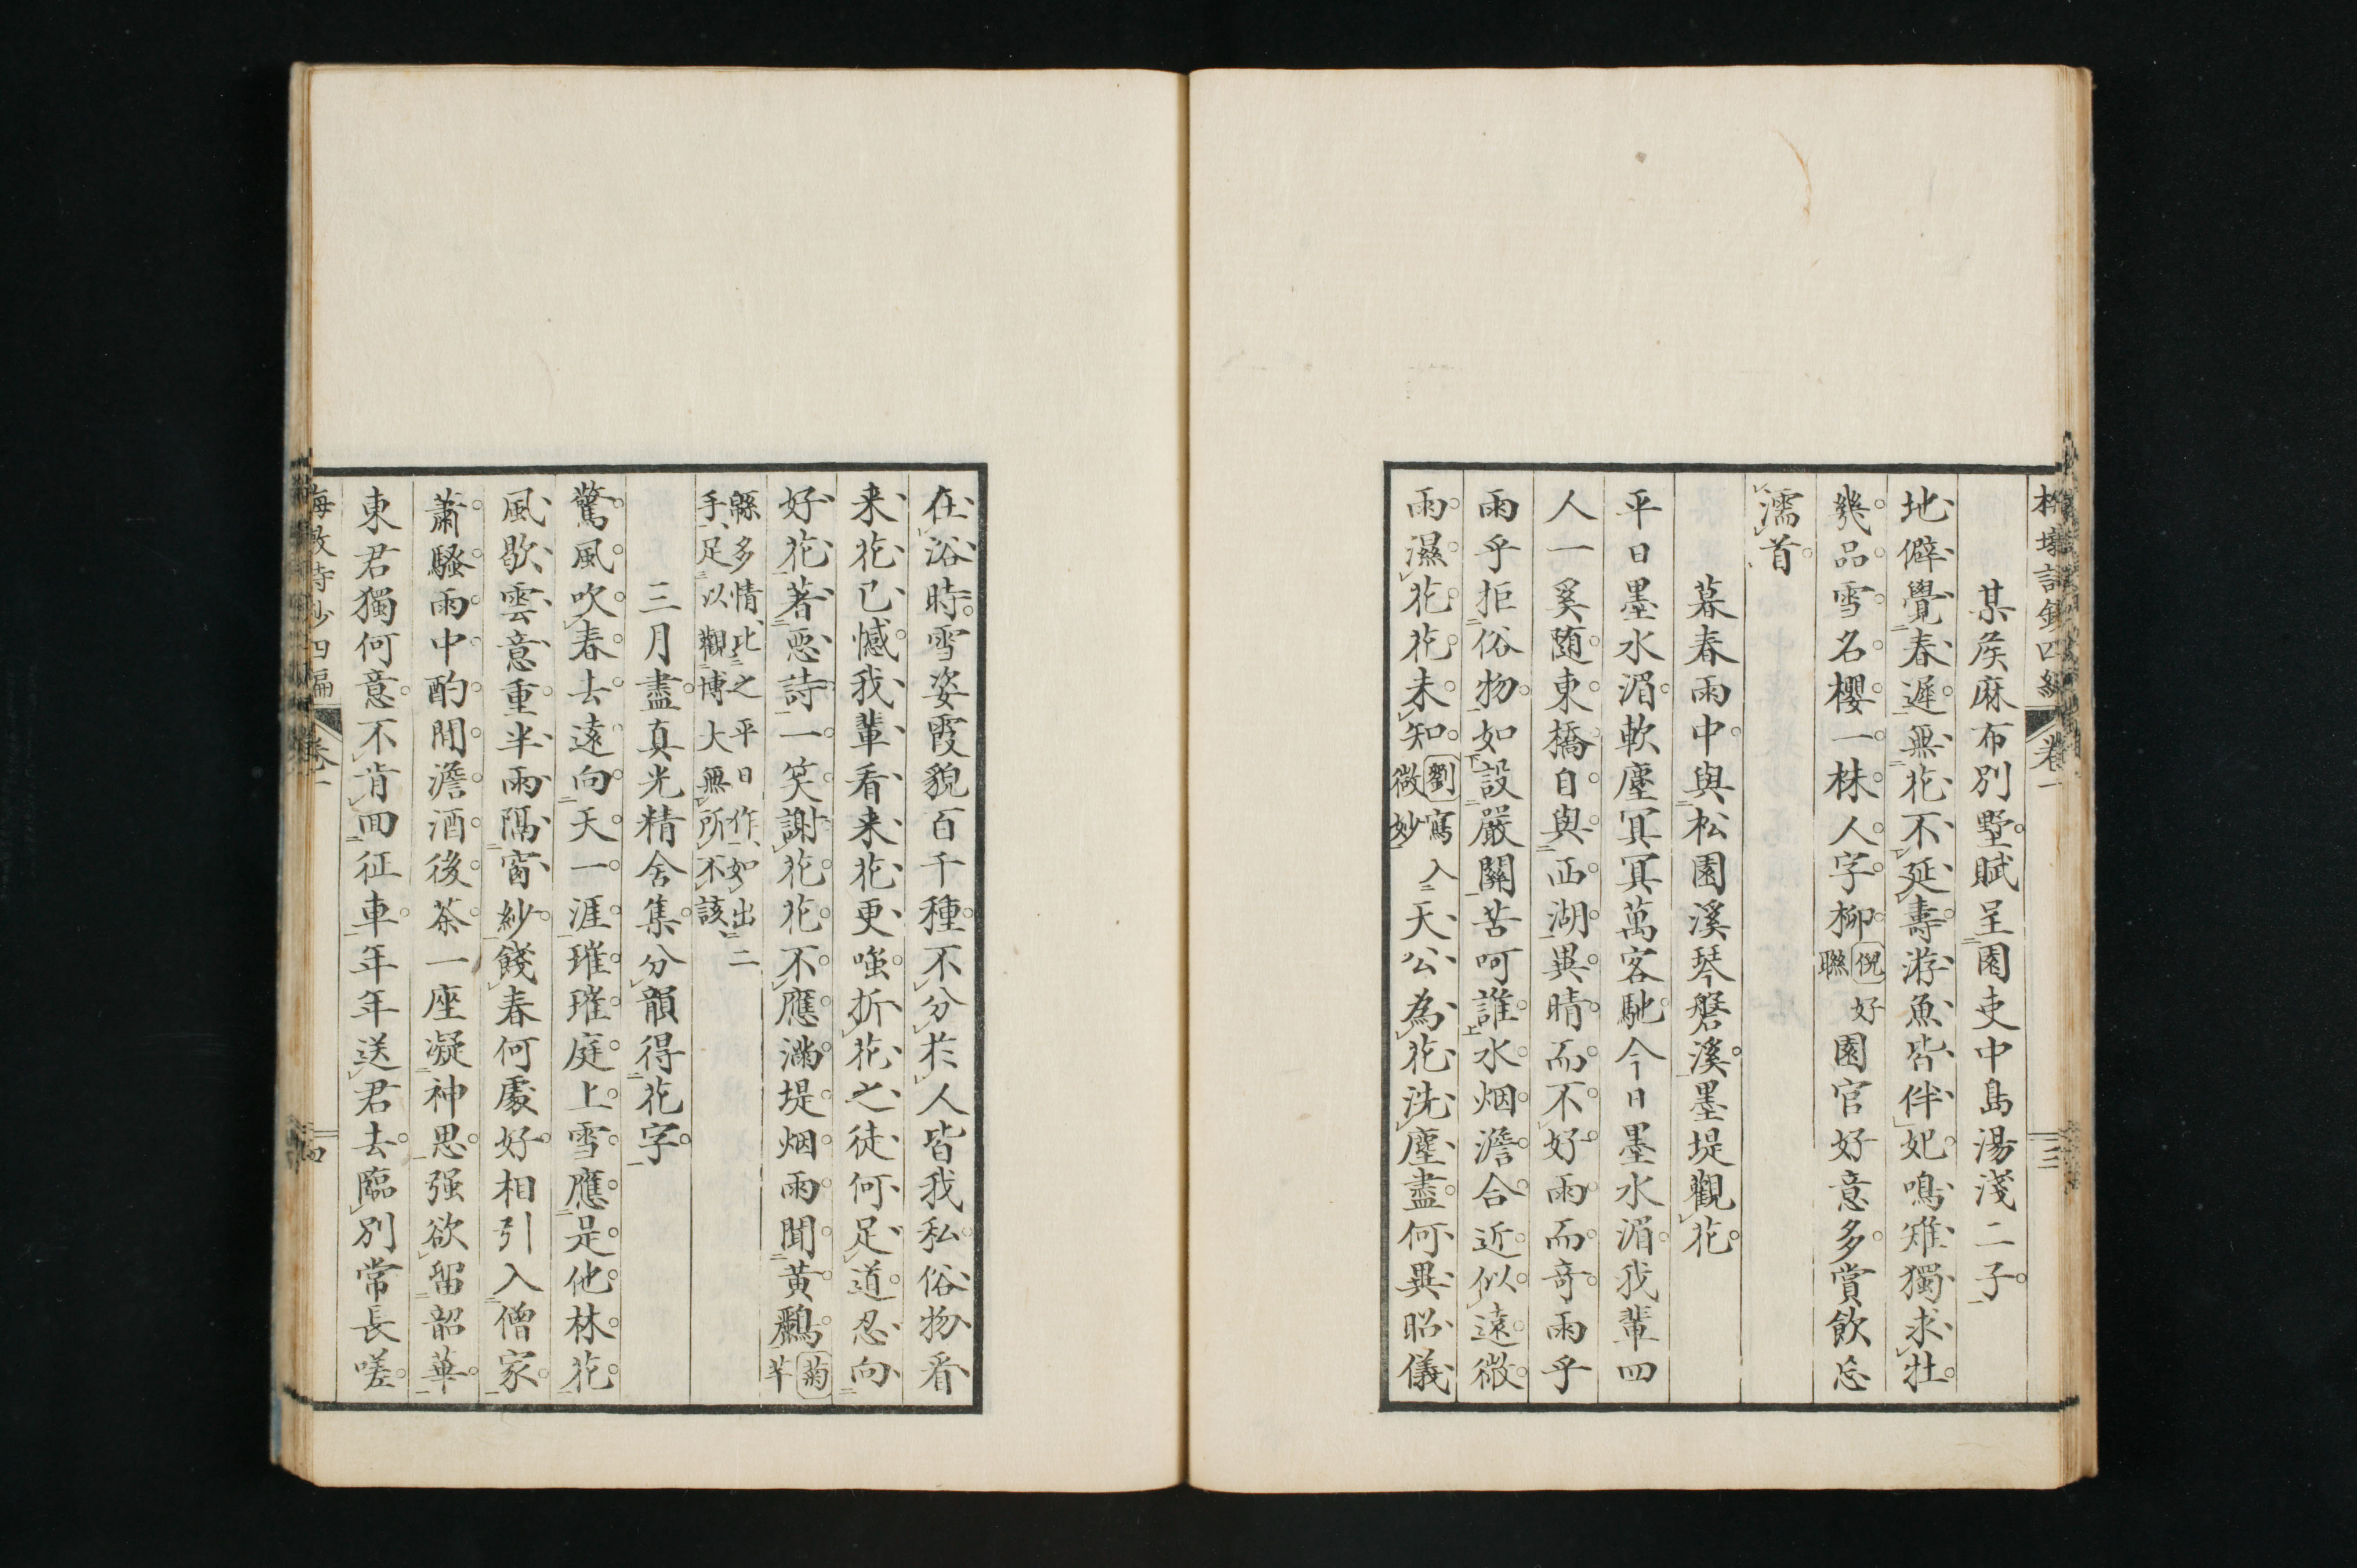 某矦麻布別墅賦呈園吏中島湯淺二子
地僻覺春遲無花不延壽游魚皆伴妃鳴雉獨求牡
幾品雪名櫻一株人字柳 倪好聯 園官好意多賞飲忘
濡首
暮春雨中與松園溪琴磐溪墨堤觀花
平日墨水湄軟塵冥冥萬客馳今日墨水湄我輩四
人一奚随東橋自與西湖異晴而不好雨而奇雨乎
雨乎拒俗物如設嚴關苦呵誰水烟澹合近似遠微
雨濕花花未知 劉寫入微妙 天公為花洗塵盡何異昭儀
卷一
三
在浴時雪姿霞貌百千種不分於人皆我私俗物看
来花已憾我輩看来花更嗤折花之徒何足道忍向
好花著惡詩一笑謝花花不應滿堤烟雨聞黄鸝 菊芊
緜多情比之平日作如出二
手足以觀博大無所不該
三月盡真光精舍集分韻得花字
驚風吹春去遠向天一涯璀璀庭上雪應是他林花
風歇雲意重半雨隔窗紗餞春何處好相引入僧家
蕭騷雨中酌閒澹酒後茶一座凝神思强欲留韶華
東君獨何意不肯回征車年年送君去臨別常長嗟
詩鈔四編 卷一
四